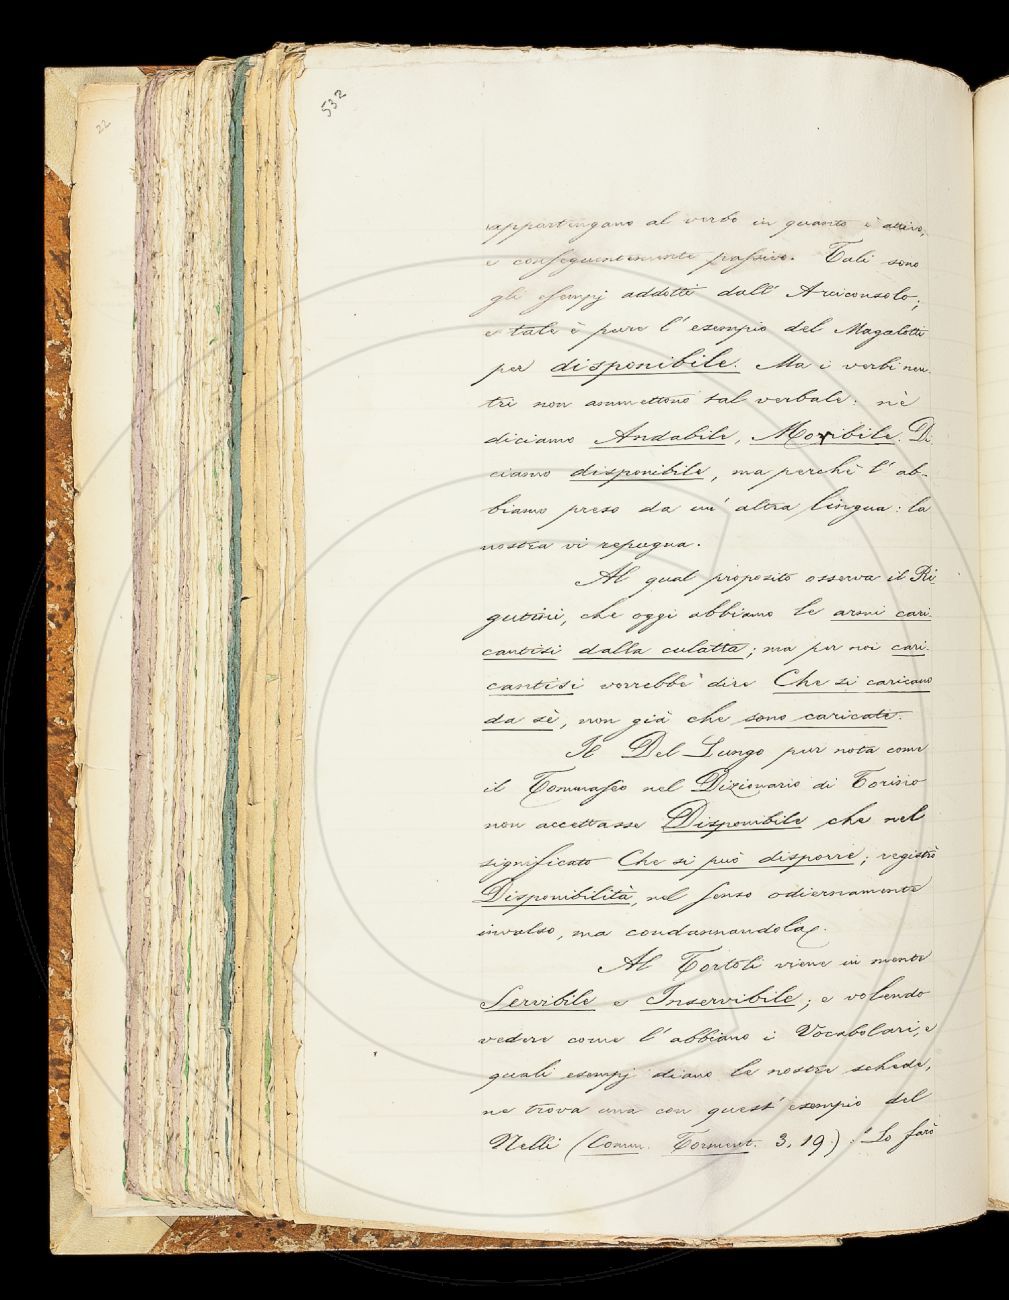 22
532
appartengano al verbo in quanto è attivo,
e conseguentemente passivo. Tali sono
gli esempj addotti dall' Arciconsolo;
e tale è pure l' esempio del Magalotti
per disponibile. Ma i verbi neu-
tri non ammettono tal verbale: nè
diciamo Andabile, Moribile. Di
ciamo disponibile, ma perchè l' ab-
biamo preso da un' altra lingua: la
nostra vi repugna.
Al qual proposito osserva il Ri
gutini, che oggi abbiamo le armi cari-
cantisi dalla culatta; ma per noi cari-
cantisi verrebbe a dire Che si caricano
da sè, non già che sono caricate.
Il Del Lungo pur nota come
il Tommaseo nel Dizionario di Torino
non accettasse Disponibile che nel
significato Che si può disporre; registrò
Disponibilità, nel senso odiernamente
invalso, ma condannandola.
Al Tortoli viene in mente
Servibile e Inservibile; e volendo
vedere come l' abbiano i Vocabolari, e
quali esempj diano le nostre schede,
ne trova una con quest' esempio del
Nelli (Comm. Torment. 3, 19.). "Lo farò